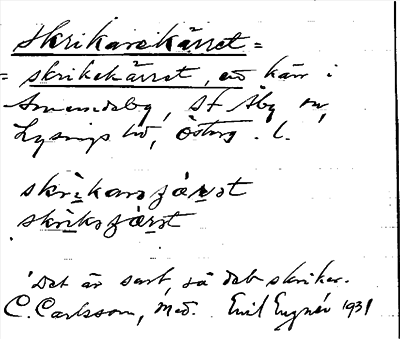 Skrikarekärret =
= skrikekärret, ett kärr i
by, St Åby sn,
Lysings hd, Österg. l.
skrikarsʃärət
skriksʃärət
Det är sart, så dab skriker.
C. Carlsson, Med. Emil Engnér 1931